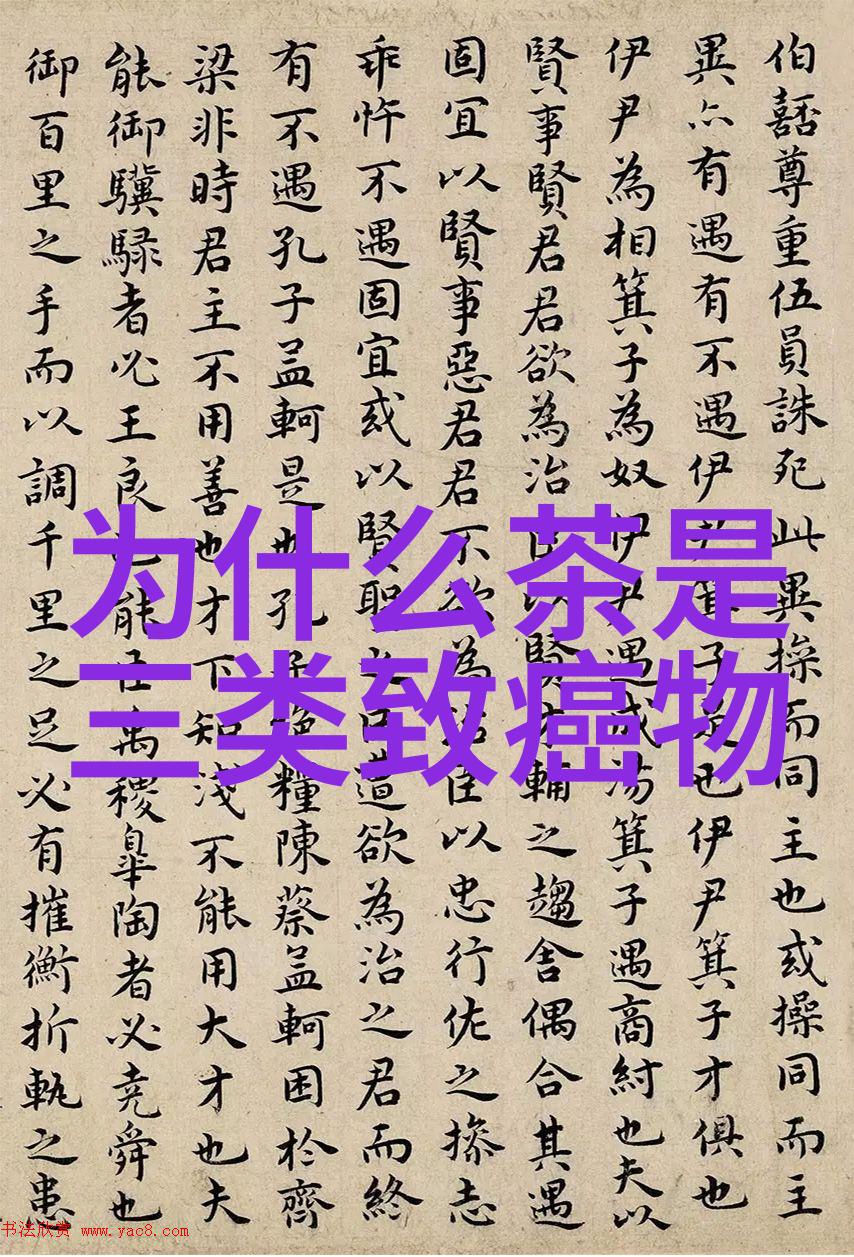 伯嚭尊重伍員誅死此異操而同主也或操同而主
異亦有遇有不遇伊尹箕子是也伊尹箕子才俱也
伊尹為相箕子為奴伊尹遇成湯箕子遇商紂也夫以
賢事賢君君欲為治臣以賢才輔之趨舍偶合其遇
固宜以賢事惡君君不欲為治臣以忠行佐之操志
乖忤不遇固宜或以賢聖之臣遭欲為治之君而終
有不遇孔子孟軻是也孔子絕糧陳蔡孟軻困於齊
梁非時君主不用善也才下知淺不能用大才也夫
能御驥騄者必王良也能臣禹稷皋陶者必堯舜也
御百里之手而以調千里之足必有摧衡折軛之患
为什么茶是
三类致癌物
书法欣赏 www.yac8.com